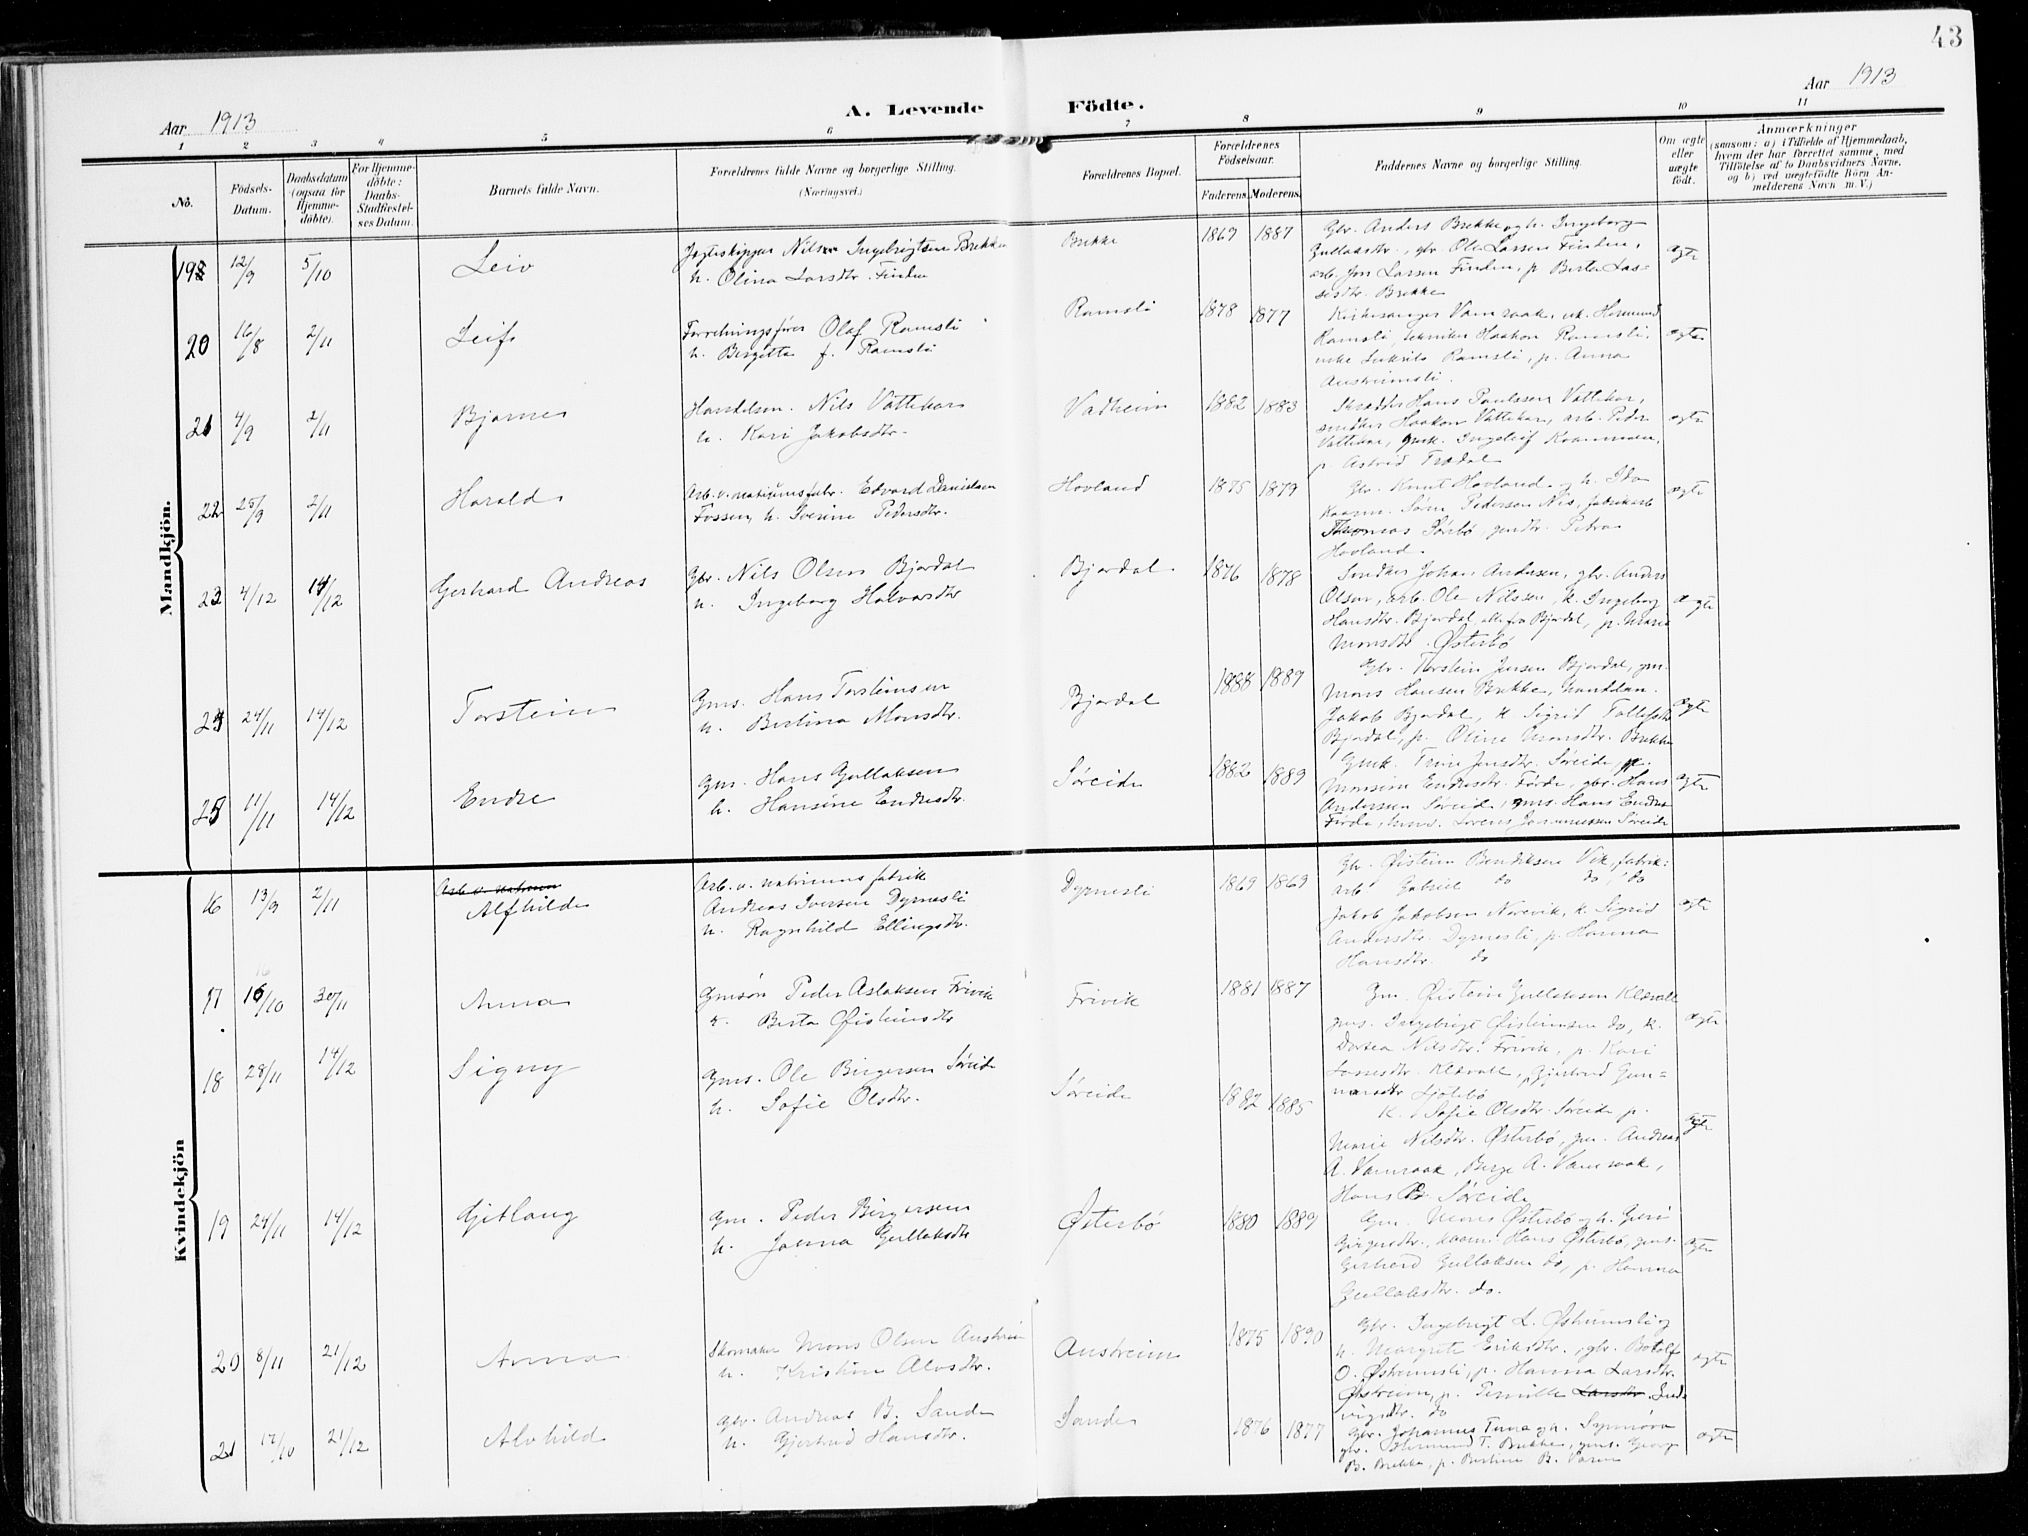 43
Aar 1913
A. Levende Födte.
Aar 1913
1 2 3 4 5 6 7 8 9 10 11
No.
Födsels-Datum.
Daabsdatum (ogsaa for Hjemme-döbte).
For Hjemme-döbte: Daabs-Stadfæstel-ses Datum.
Barnets fulde Navn.
Forældrenes fulde Navne og borgerlige Stilling. (Næringsvei.)
Forældrenes Bopæl.
Forældrenes Födselsaar.
Faderens. Moderens.
Faddernes Navne og borgerlige Stilling.
Om ægte eller uægte födt.
Anmærkninger
(saasom: a) i Tilfælde af Hjemmedaab, hvem der har forrettet samme, med Tilföielse af to Daabsvidners Navne, og b) ved uægtefödte Börn An-melderens Navn m. V.)
Mandkjön.
19 12/9 5/10 Leiv
Jagteskipper Nils Ingebrigtsen Brekke
h. Olina Larsdtr. Finden
Brekke 1869 1887
Gbr. Anders Brekke og h. Ingeborg
Gullaksdtr., gbr. Ole Larsen Finden,
arb. Jon Larsen Finden, p. Berta Las-
sedtr. Brekke
ægte
20 16/8 2/11 Leif
Forretningsfører Olaf Ramsli
h. Bergitta f. Ramsli
Ramsli 1878 1877
Kirkesanger Vamraak, uk. Hermund
Ramsli, tekniker Haakon Ramsli,
Ramsli, p. Anna
Austreimsli.
ægte
21 4/9 2/11 Bjarne
Handelsm. Nils Vattekar
h. Kari Jakobsdtr.
Vadheim 1882 1883
Skrædder Hans Paulssen Vattekar,
snedker Haakon Vattekar, arb. Peder
Vattekar, gmk. Ingeleif
p. Astrid Trædal
ægte
22 25/9 2/11 Harald
Arb. v. natriumsfabr. Edvard Danielsen
Fossen, h. Severine Pedersdtr.
Hovland 1875 1879
Gbr. Knut Hovland og h. Ida
Kaarm. Søren Pedersen Nes, fabrikarb
Thomas Sørebø, gmdtr. Petra
Hovland.
ægte
23 4/12 14/12 Gerhard Andreas
Gbr. Nils Olsen Bjordal
h. Ingeborg Halvarsdtr
Bjordal 1876 1878
Snedker Johan Andersen, gbr. Anders
Olsen, arb. Ole Nilssen, k. Ingeborg
Hansdtr. Bjordal, alle fra Bjordal, p. Marie
Monsdtr. Østerbø
ægte
24 24/11 14/12 Torstein
Gms. Hans Torsteinsen
h. Bertina Monsdtr.
Bjordal 1888 1889
Gbr. Torstein Jensen Bjordal, gm.
Mons Hansen Brekke,
Jakob Bjordal, k. Sigrid Tollefsdtr
Bjordal, p. Oline Monsdtr. Brekke
ægte
25 11/11 14/12 Endre
Gms. Hans Gullaksen
h. Hansine Endresdtr.
Søreide 1882 1889
Gmk. Trine Jensdtr. Søreide, p.
Monsine Endresdtr. Førde, gbr. Hans
Anderssen Søreide, gms. Hans Endres
Førde, Lorens Johannessen Søreide
ægte
Kvindekjön
16 13/9 2/11 Alfhild
Arb. v. natriumsfabrik
Andreas Iversen Dyrnesli
h. Ragnhild Ellingsdtr.
Dyrnesli 1869 1869
Gbr. Øistein Bendiksen Vik, fabrik-
arb Gabriel do do, do
Jakob Jakobsen Norevik, k. Sigrid
Andersdtr. Dyrnesli, p. Hanna
Hansdtr. do
ægte
17 16/10 30/11 Anna
Gmsøn Peder Aslaksen Frivik
h. Berta Øisteinsdtr
Frivik 1881 1887
Gm. Øistein Gullaksen Klævold
gms. Ingebrigt Øisteinsen do, k.
Dortea Nilsdtr. Frivik, p. Kari
Lassesdtr. Klævold, Gjertrud Gun-
narsdtr
ægte
18 28/11 14/12 Signy
Gms. Ole Birgersen Søreide
h. Sofie Olsdtr.
Søreide 1882 1885
K. Sofie Olsdtr. Søreide p.
Marie Nilsdtr. Østerbø, gm. Andreas
A. Vamraak, Berge A. Vamraak,
Hans Søreide
ægte
19 24/11 14/12 Gjetlaug
Gm. Peder Birgersen
h. Jonna Gullaksdtr
Østerbø 1880 1889
Gm. Mons Østerbø og h.
Hans Østerbø, gms.
Gerhard Gullaksen do, p. Hanna
Gullaksdtr. do.
ægte
20 8/11 21/12 Anna
Skomaker Mons Olsen Austreim
h. Kristine Alvsdtr.
Austreim 1875 1890
Gbr. Ingebrigt L. Østreimsli og
h. Margrete Eriksdtr., gbr. Botolf
O. Østreimsli, p. Hanna Larsdtr.
Østreim, p. Pernille Larsdtr.
do
ægte
21 17/10 21/12 Alvhild
Gbr. Andreas B. Sande
h. Gjertrud Hansdtr.
Sande 1876 1877
Gbr. Johannes Tune og h. Synnøva
gbr. Hermund T. Brekke, gms. Georg
B. Brekke, p. Bertine B.
ægte